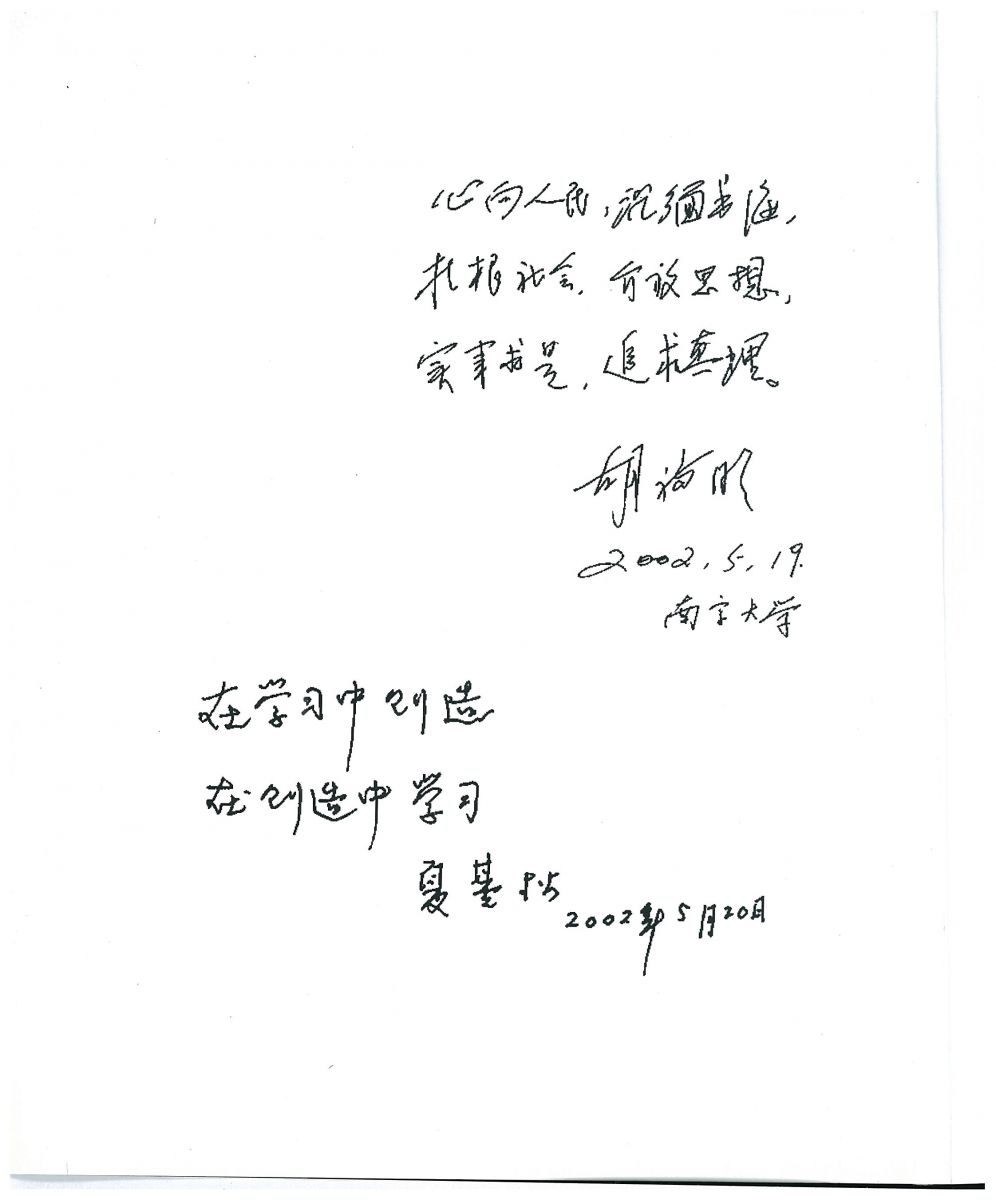 心向人民,沉缅书海,
扎根社会,介放思想,
实事求是,追求真理。
胡福明
2002.5.19.
南京大学
在学习中创造
在创造中学习
夏基松
2002年5月20日